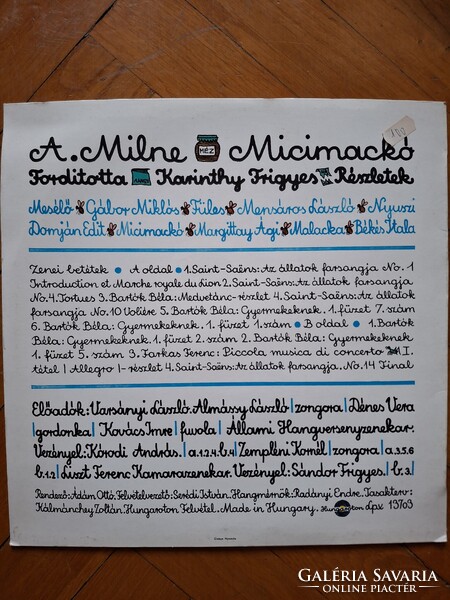 A. Milne MÉZ Micimackó
Fordította Karinthy Frigyes Részletek
Mesélő Gábor Miklós Füles Mensáros László Nyuszi
Domján Edit Micimackó Margittay Ági Malacka Békés Itala
Zenei betétek • A oldal • 1. Saint-Saëns: Az állatok farsangja No. 1
Introduction et Marche royale du Lion 2. Saint-Saëns: Az állatok farsangja
No. 4. Tortues 3. Bartók Béla: Medvetánc-részlet 4. Saint-Saëns: Az állatok
farsangja No. 10 Volière 5. Bartók Béla: Gyermekeknek. 1. füzet 7. szám
6. Bartók Béla: Gyermekeknek. 1. füzet 1. szám • B oldal • 1. Bartók
Béla: Gyermekeknek. 1. füzet 2. szám 2. Bartók Béla: Gyermekeknek
1. füzet 5. szám 3. Farkas Ferenc: Piccola musica di concerto I.
tétel | Allegro |-részlet 4. Saint-Saëns: Az állatok farsangja. No. 14 Final
Előadók: Varsányi László. Almássy László | zongora | Dénes Vera
| gordonka | Kovács Imre | fuvola | Állami Hangversenyzenekar.
Vezényel: Kórodi András. | a. 1.2.4. b. 4 | Zempléni Kornél | zongora | a. 3.5.6
b. 1.2 | Liszt Ferenc Kamarazenekar. Vezényel: Sándor Frigyes. | b. 3 |
Rendező: Ádám Ottó. Felvételvezető: Serédi István. Hangmérnök: Radányi Endre. Tasakterv:
Kálmánchey Zoltán. Hungaroton Felvétel. Made in Hungary. Hungaroton Lpx 13703
GALÉRIA SAVARIA
ONLINE PIACTÉR